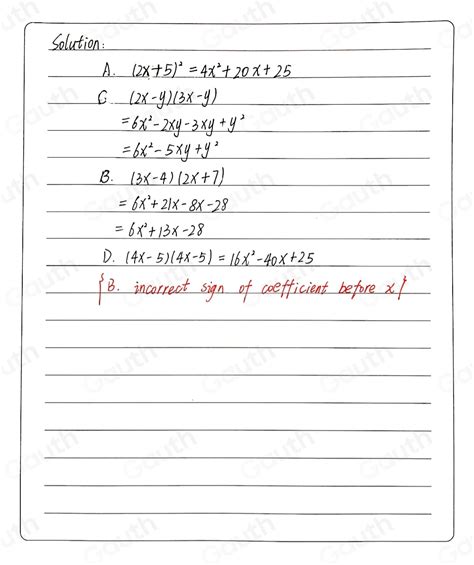 Solution:
A. (2x+5)² = 4x²+20x+25
C (2x-y)(3x-y)
= 6x²-2xy-3xy+y²
= 6x²-5xy+y²
B. (3x-4)(2x+7)
= 6x²+21x-8x-28
= 6x²+13x-28
D. (4x-5)(4x-5) = 16x²-40x+25
{B. incorrect sign of coefficient before x}